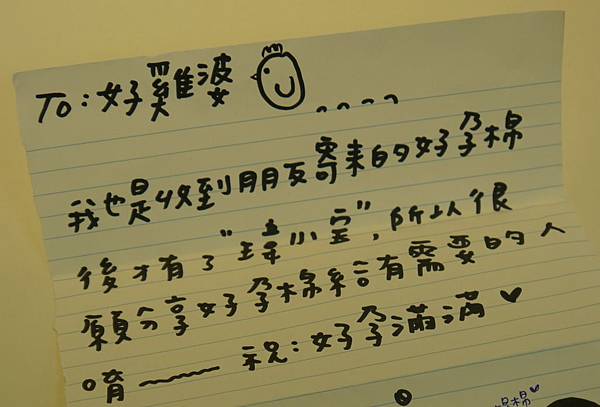 To:好雞婆
我也是收到朋友寄來的好孕棉
後才有了"璋小宝",所以很
願分享好孕棉給有需要的人
唷 —— 祝:好孕滿滿♥